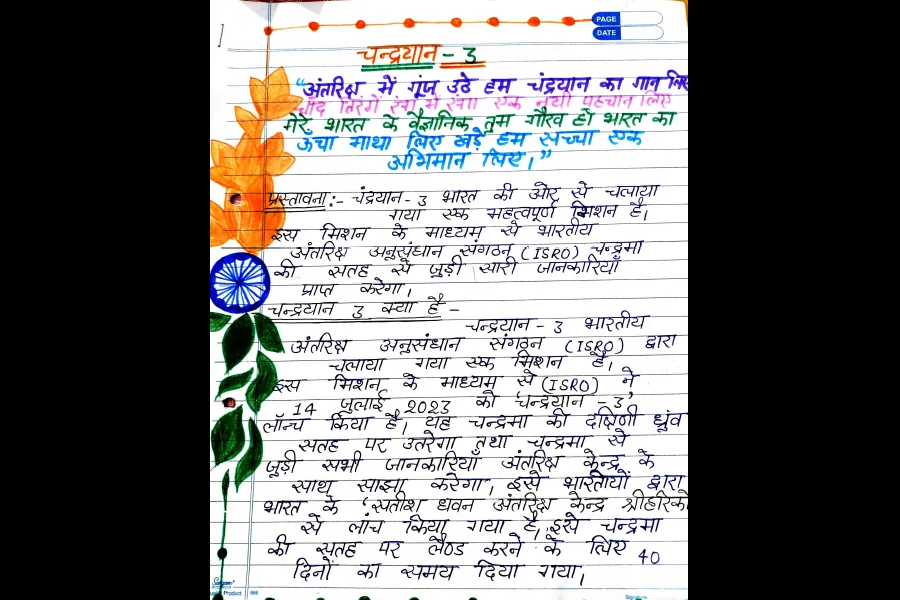 PAGE
DATE
चन्द्रयान - 3
"अंतरिक्ष में गूंज उठे हम चंद्रयान का गान लिए
चाँद तिरंगें रंग में रंगा एक नयी पहचान लिए
मेरे भारत के वैज्ञानिक तुम गौरव हो भारत का
ऊँचा माथा लिए खड़े हम सच्चा एक
अभिमान लिए।"
प्रस्तावना :- चंद्रयान - 3 भारत की ओर से चलाया
गया एक महत्वपूर्ण मिशन है।
इस मिशन के माध्यम से भारतीय
अंतरिक्ष अनुसंधान संगठन (ISRO) चन्द्रमा
की सतह से जुड़ी सारी जानकारियाँ
प्राप्त करेगा।
चन्द्रयान 3 क्या है -
चन्द्रयान - 3 भारतीय
अंतरिक्ष अनुसंधान संगठन (ISRO) द्वारा
चलाया गया एक मिशन है।
इस मिशन के माध्यम से (ISRO) ने
14 जुलाई 2023 को 'चन्द्रयान - 3'
लॉन्च किया है। यह चन्द्रमा की दक्षिणी ध्रुव
सतह पर उतरेगा तथा चन्द्रमा से
जुड़ी सभी जानकारियाँ अंतरिक्ष केन्द्र के
साथ साझा करेगा। इसे भारतीयों द्वारा
भारत के 'सतीश धवन अंतरिक्ष केन्द्र श्रीहरिको
से लांच किया गया है, इसे चन्द्रमा
की सतह पर लैण्ड करने के लिए 40
दिनों का समय दिया गया।
Sargam
Product 666